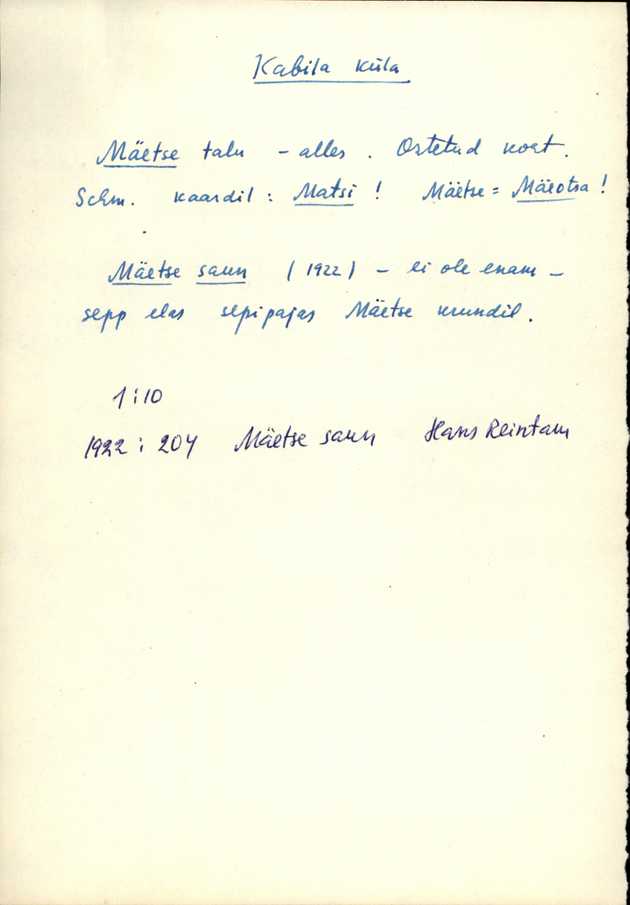 Kabila küla
Mäetse talu - alles. Ostetud koht.
Schm. kaardil: Matsi! Mäetse = Mäeotsa!
Mäetse saun (1922) - ei ole enam -
sepp elas sepipajas Mäetse krundil.
1:10
1922: 204 Mäetse saun Hans Reintam